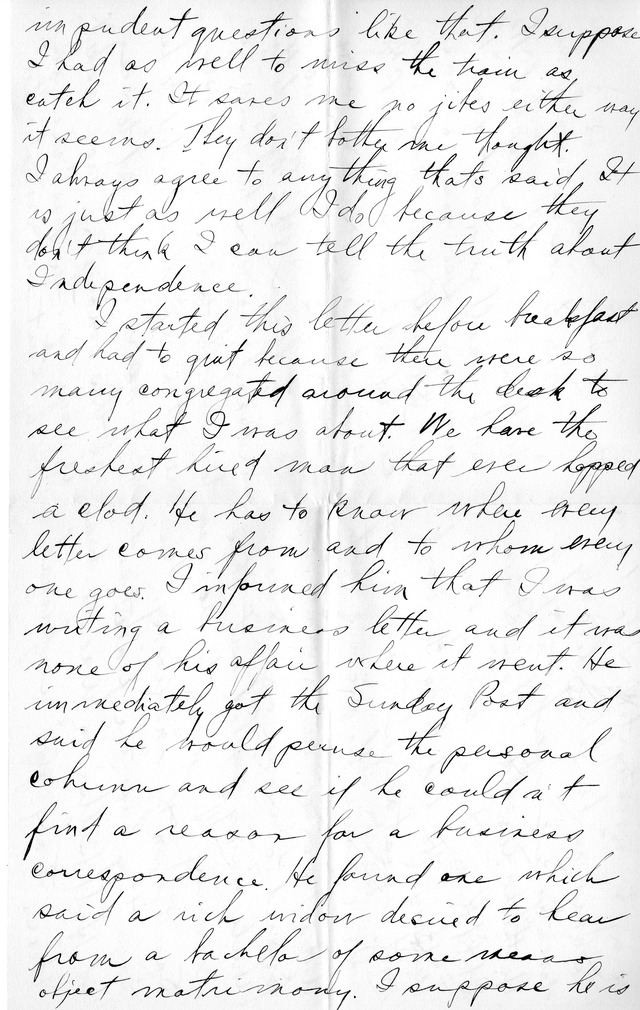 impudent questions like that. I suppose
I had as well to miss the train as
catch it. It saves me no jibes either way
it seems. They don't bother me though.
I always agree to anything thats said. It
is just as well I do because they
don't think I can tell the truth about
Independence.
I started this letter before breakfast
and had to quit because there were so
many congregated around the desk to
see what I was about. We have the
freshest hired man that ever hopped
a clod. He has to know where every
letter comes from and to whom every
one goes. I informed him that I was
writing a business letter and it was
none of his affair where it went. He
immediately got the Sunday Post and
said he would peruse the personal
column and see if he couldn't
find a reason for a business
correspondence. He found one which
said a rich widow desired to hear
from a bachelor of some means
object matrimony. I suppose he is